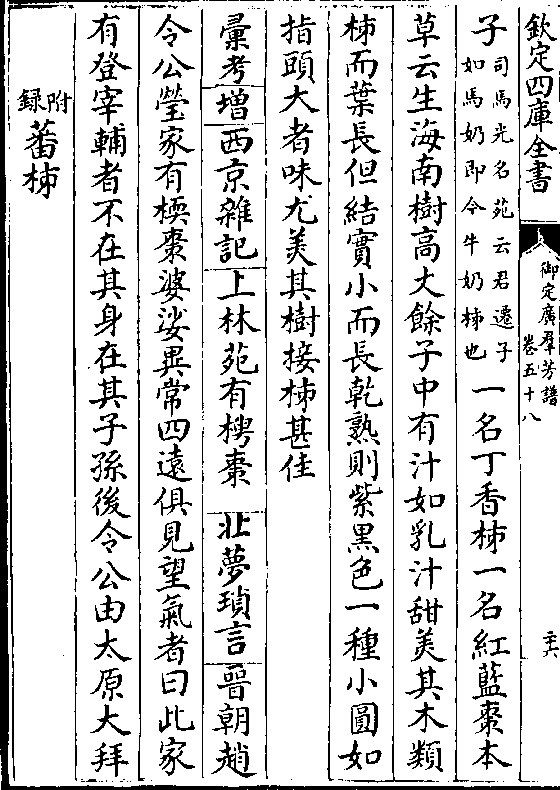 欽定四庫全書
御定廣羣芳譜
卷五十八
子司馬光名苑云君遷子如馬奶即今牛奶柹也一名丁香柹一名紅藍棗本
草云生海南樹高丈餘子中有汁如乳汁甜美其木類
柹而葉長但結實小而長乾熟則紫黑色一種小圓如
指頭大者味尤美其樹接柹甚佳
彚考增西京雜記上林苑有梬棗　北夢瑣言晉朝趙
令公瑩家有㮕棗婆娑異常四遠俱見望氣者曰此家
有登宰輔者不在其身在其子孫後令公由太原大拜
附録蕃柹